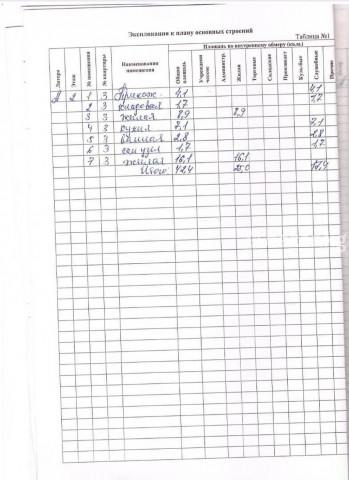 Экспликация к плану основных строений
Таблица №1
Площадь по внутреннему обмеру (кв.м.)
Литера Этаж № помещения № квартиры Наименования помещения Общая площадь Учрежденческие Администр. Жилая Торговые Складские Произв. Культ.-быт. Служебные Прочие
А 2 1 3 Прихож. 4,1 4,1
2 3 кладовая 1,7 1,7
3 3 жилая 8,9 8,9
4 3 кухня 7,1 7,1
5 3 ванная 2,8 2,8
6 3 сан узел 1,7 1,7
7 3 жилая 16,1 16,1
Итого 42,4 25,0 17,4